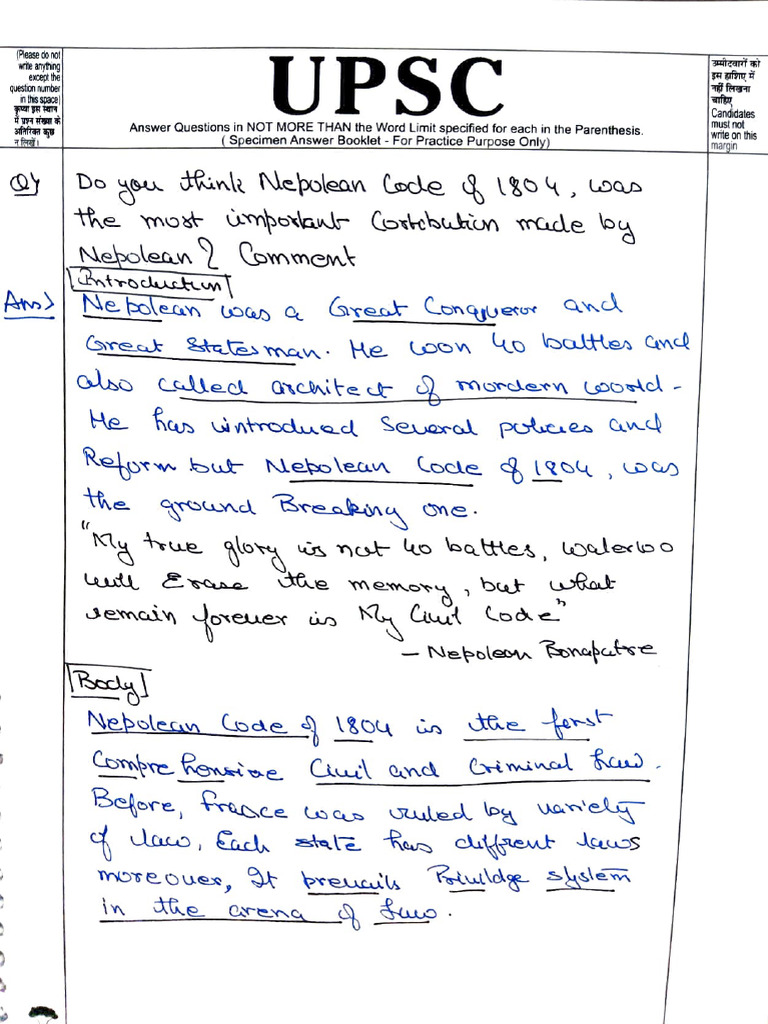 (Please do not
write anything
except the
question number
in this space)
कृपया इस स्थान
में प्रश्न संख्या के
अतिरिक्त कुछ
न लिखें।
UPSC
Answer Questions in NOT MORE THAN the Word Limit specified for each in the Parenthesis.
( Specimen Answer Booklet - For Practice Purpose Only)
उम्मीदवारों को
इस हाशिए में
नहीं लिखना
चाहिए
Candidates
must not
write on this
margin
Do you think Nepolean Code of 1804, was
the most important Contcbution made by
Nepolean? Comment
Introduction
Ans> Nepolean was a Great Conqueror and
Great Statesman. He won 40 battles and
also called architect of mordern world -
He has introdued several policies and
Reform but Nepolean Code of 1804, was
the ground Breaking one.
"My true glory is not 40 battles, Waterloo
will Erase the memory, but what
remain forever is My Civil Code"
- Nepolean Bonapatre
Body
Nepolean Code of 1804 is the ferst
Comprehensive Civil and Criminal Law.
Before, france was ruled by variety
of law, Each state has diffrent laws
moreover, It prevails Priviledge system
in the arena of Law.